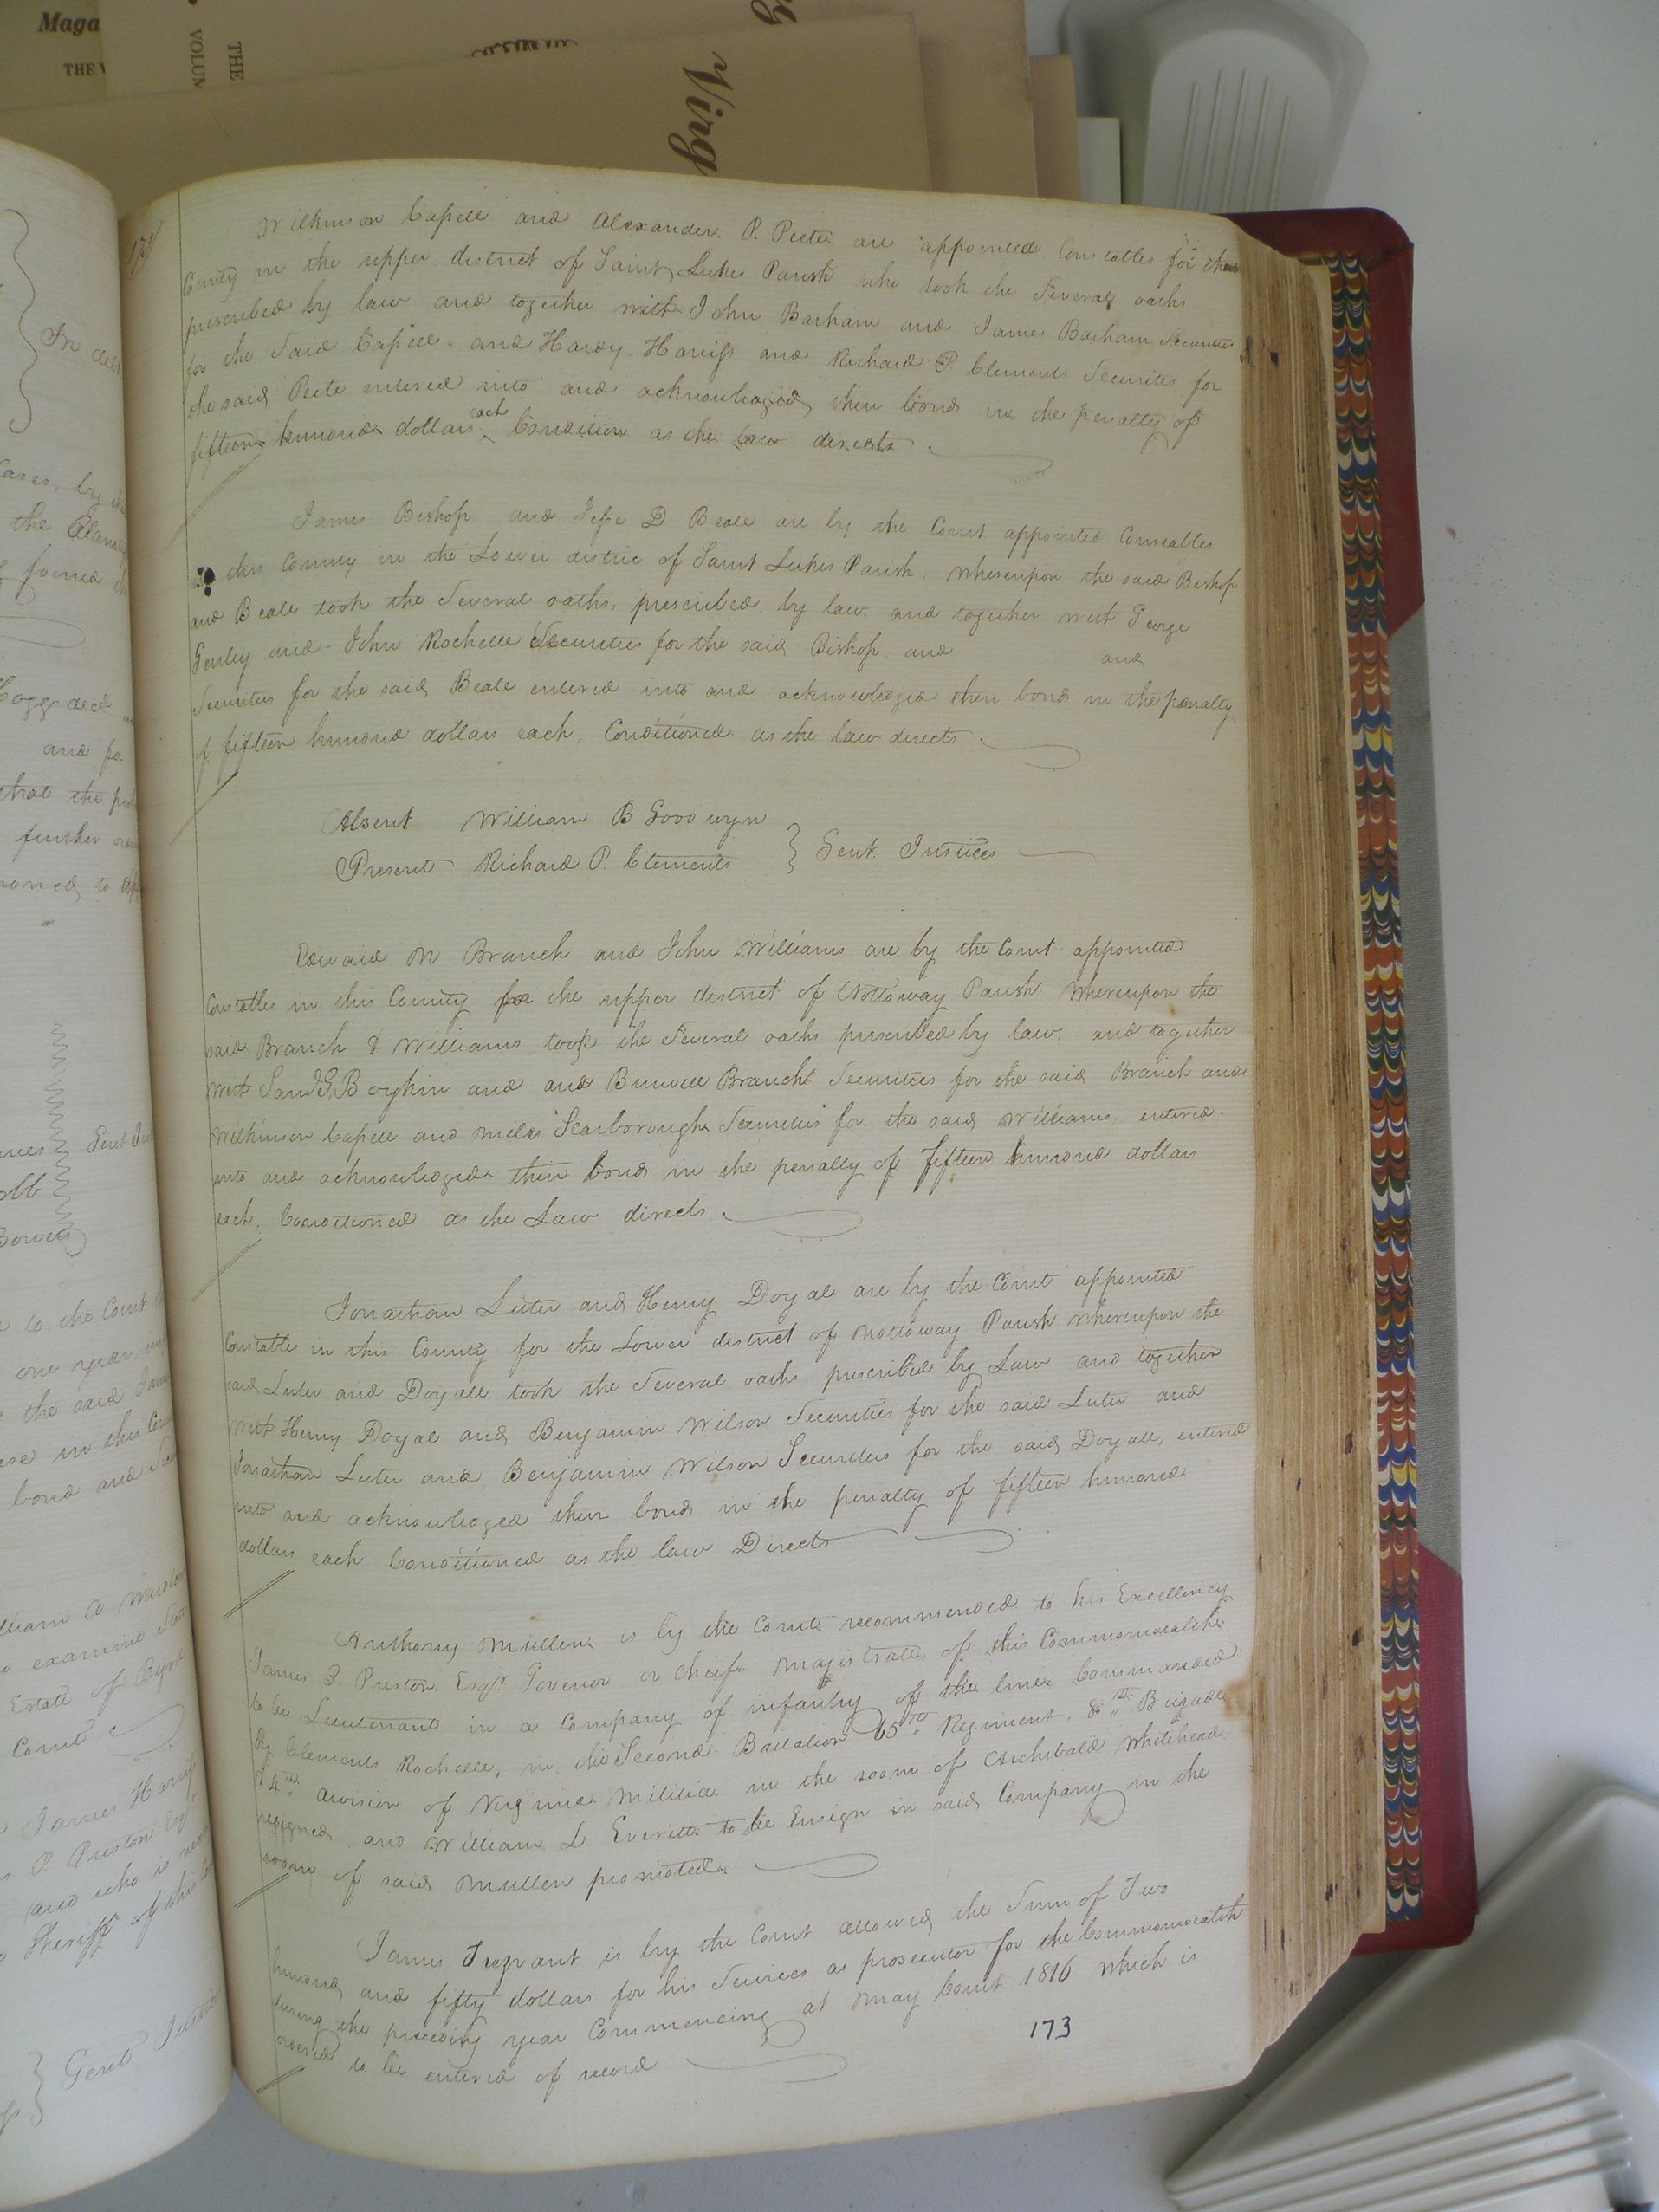 Maga
THE V
THE
VOLUM
Virg
Wilkinson Capell and Alexander P. Peete are appointed Constables for this
County in the upper district of Saint Lukes Parish who took the Several oaths
prescribed by law and together with John Barham and James Barham Securities
for the Said Capell and Hardy Harriss and Richard P. Clements Securities for
the said Peete entered into and acknowledged their bonds in the penalty of
fifteen hundred dollars each Condition as the law directs.
James Bishop and Jesse D Beale are by the Court appointed Constables
this County in the Lower distric of Saint Lukes Parish, whereupon the said Bishop
and Beale took the Several oaths, prescribed by law and together with George
Gurley and John Rochelle Securities for the said Bishop, and and
Securities for the said Beale entered into and acknowledged their bond in the penalty
of fifteen hundred dollars each, Conditioned as the law directs.
Absent William B Goodwyn
Present Richard P. Clements } Gent. Justices
Edward M Branch and John Williams are by the Court appointed
Constables in this County for the upper district of Nottoway Parish Whereupon the
said Branch & Williams took the Several oaths prescribed by law and together
with Saml G. Boykin and and Burwell Branch Securities for the said Branch and
Wilkinson Capell and Miles Scarborough Securities for the said Williams entered
into and acknowledged their bond in the penalty of fifteen hundred dollars
each, Conditioned as the Law directs.
Jonathan Luter and Henry Doyal are by the Court appointed
Constables in this County for the Lower district of Nottoway Parish whereupon the
said Luter and Doyall took the Several oaths prescribed by Law and together
with Henry Doyal and Benjamin Wilson Securities for the said Luter and
Jonathan Luter and Benjamin Wilson Securities for the said Doyall, entered
into and acknowledged their bonds in the penalty of fifteen hundred
dollars each Conditioned as the law Directs
Anthony Mullen is by the Court recommended to his Excellency
James P. Preston Esqr. Govenor or Cheif Magistrate of this Commonwealth
to be Lieutenant in a Company of infantry of the line Commanded
By Clements Rochelle, in the Second Battalion 65th Regiment, 8th Brigade
& 4th division of Virginia Militia in the room of Archibald Whitehead
resigned and William L Everitt to be Ensign in said Company in the
room of said Mullen promoted
James Trezvant is by the Court allowed the Sum of Two
hundred and fifty dollars for his Services as prosecutor for the Commonwealth
during the preceding year Commencing at May Court 1816 which is
ordered to be entered of record
173